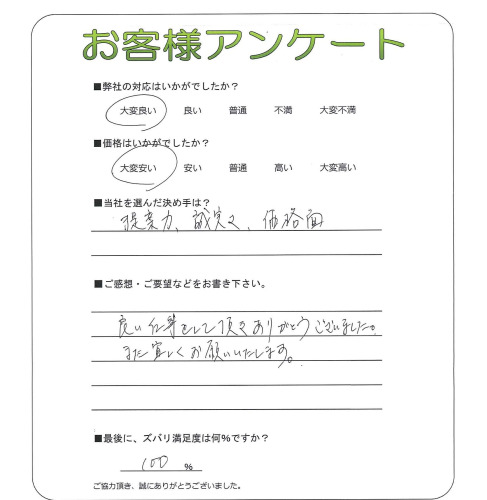 お客様アンケート
■弊社の対応はいかがでしたか？
大変良い 良い 普通 不満 大変不満
■価格はいかがでしたか？
大変安い 安い 普通 高い 大変高い
■当社を選んだ決め手は？
提案力、誠実さ、価格面
■ご感想・ご要望などをお書き下さい。
良い仕事をして頂きありがとうございました。
また宜しくお願いいたします。
■最後に、ズバリ満足度は何％ですか？
100 ％
ご協力頂き、誠にありがとうございました。